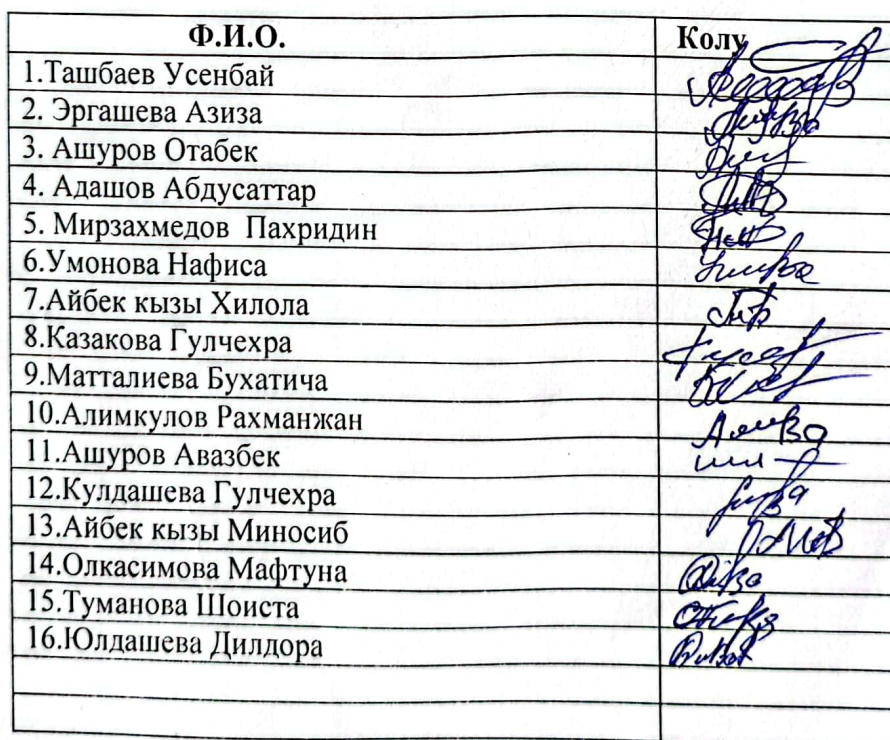 Ф.И.О. Колу
1.Ташбаев Усенбай
2. Эргашева Азиза
3. Ашуров Отабек
4. Адашов Абдусаттар
5. Мирзахмедов Пахридин
6.Умонова Нафиса
7.Айбек кызы Хилола
8.Казакова Гулчехра
9.Матталиева Бухатича
10.Алимкулов Рахманжан
11.Ашуров Авазбек
12.Кулдашева Гулчехра
13.Айбек кызы Миносиб
14.Олкасимова Мафтуна
15.Туманова Шоиста
16.Юлдашева Дилдора